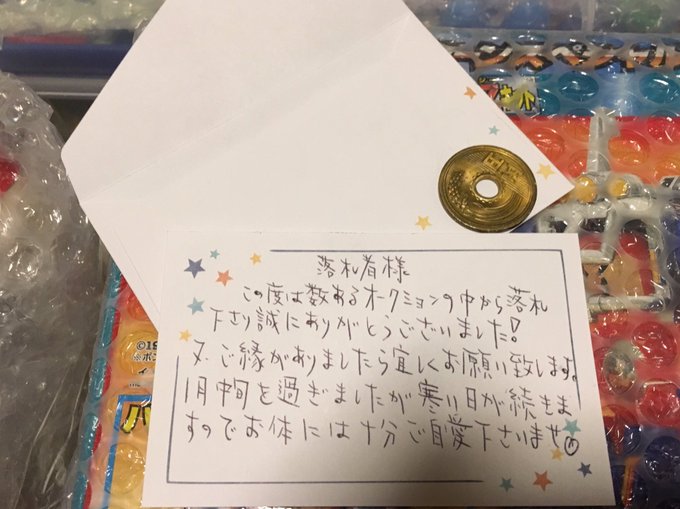 落札者様
この度は数あるオークションの中から落札
下さり誠にありがとうございました!
又、ご縁がありましたら宜しくお願い致します。
1月中旬を過ぎましたが寒い日が続きま
すのでお体には十分ご自愛下さいませ